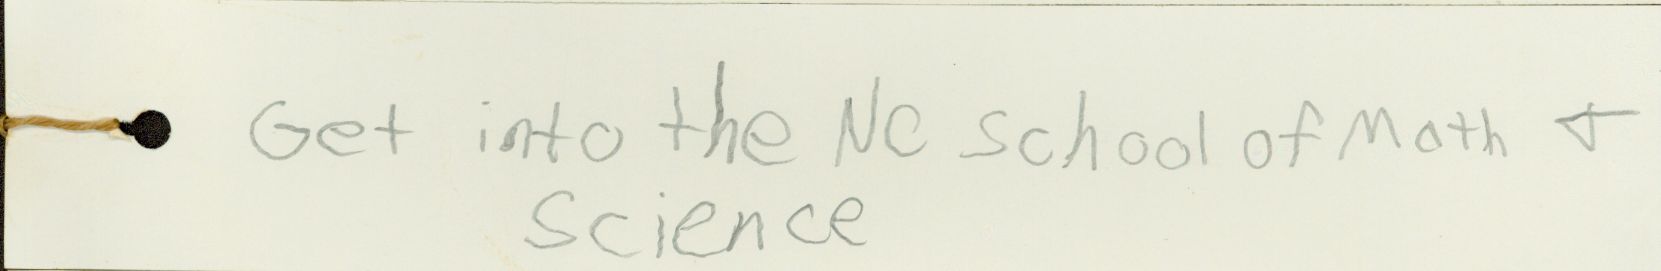 Get into the NC School of Math &
Science